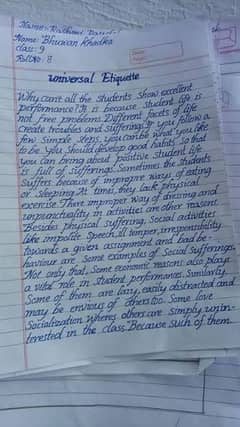 Name: Bhuwan Khadka
class: 9
Roll No: 8
universal Etiquette
Why can't all the students Show excellent
performance? It is because student life is
not free problems. Different facets of life
create troubles and suffering. If you follow a
few Simple steps, you can be what you like
to be. You should develop good habits so that
you can bring about positive student life
is full of Sufferings. Sometimes, the Students
Suffers because of improper way of eating
or Sleeping. At times, they lack physical
exercise. There improper way of dressing and
unpunctuality in activities are other reason.
Besides physical suffering, Social activities
like impolite Speech, ill temper, irresponsibility
towards a given assignment and bad be-
haviour are Some examples of Social Sufferings.
Not only that, Some economic reasons also plays
a vital role in student performances. Similarly
Some of them are lazy, easily distracted and
may be envious of others too. Some love
Socialization wheres others are simply unin-
terested in the class. Because such of them